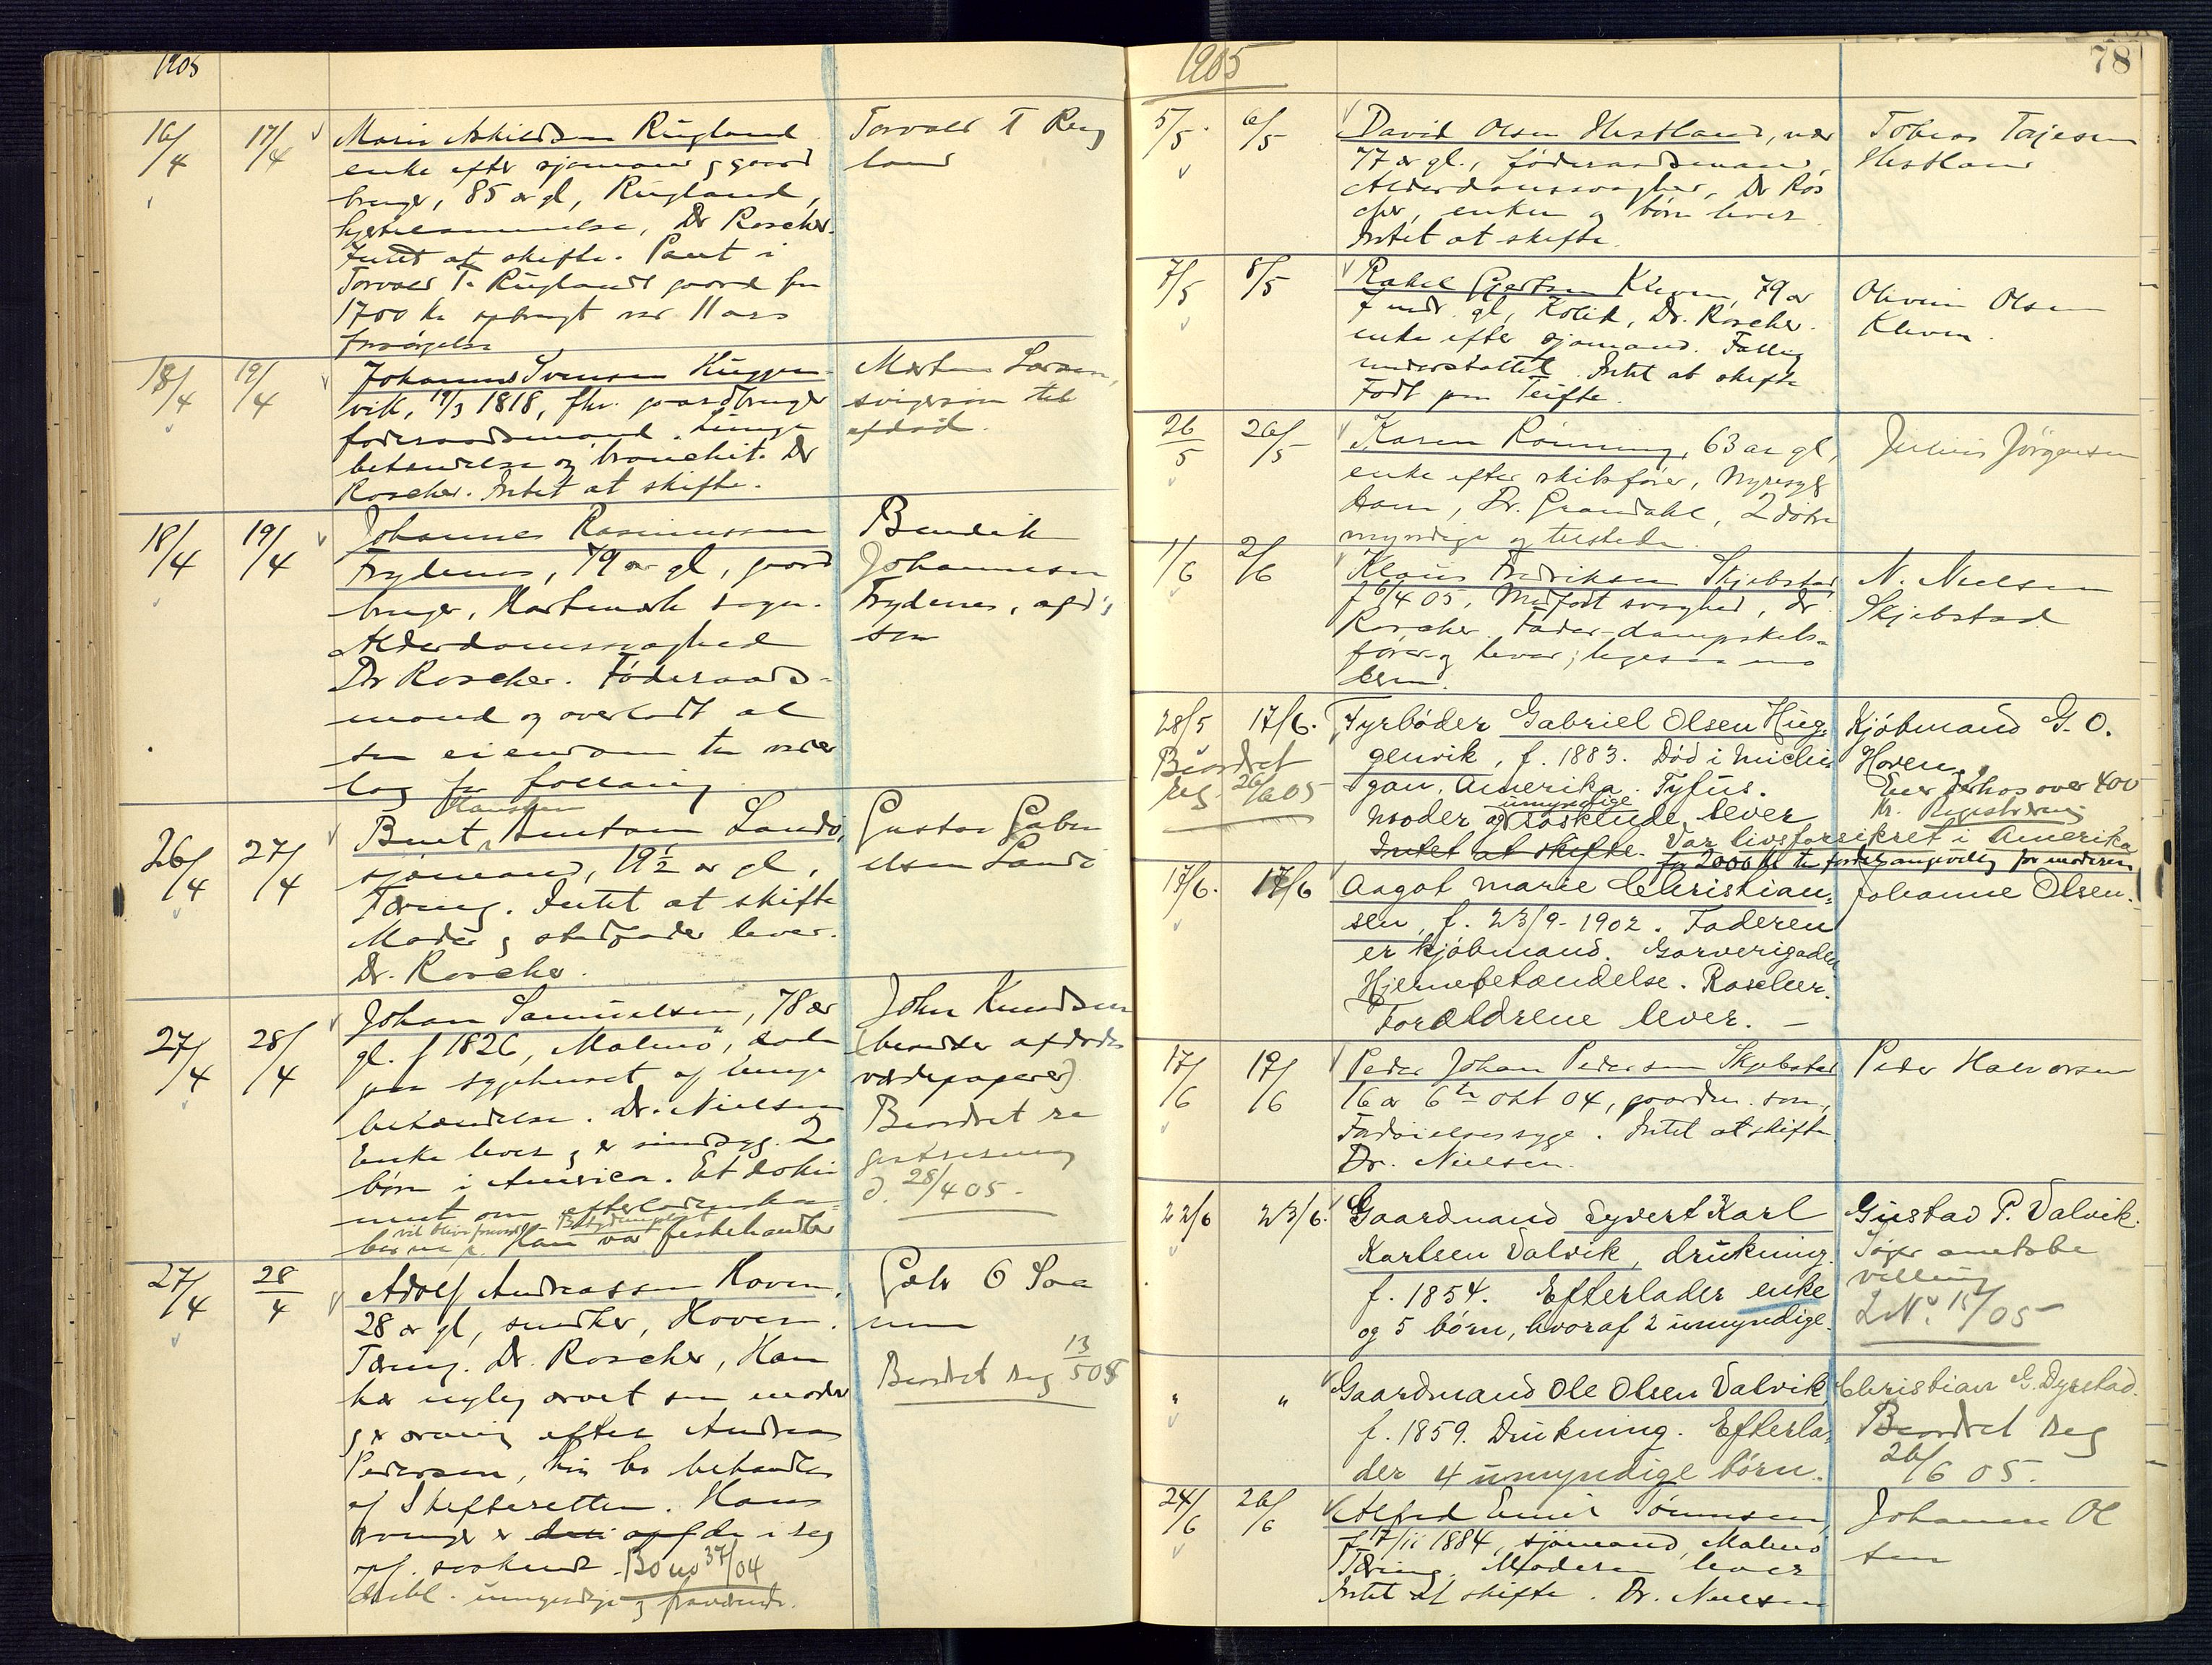 1905
16/4 17/4 Marie Askildsen Rugland
enke efter sjømand og gaard
bruger, 85 år gl, Rugland,
Dr Roscher.
Intet at skifte. Pant i
Torvald T. Ruglands gaard for
1700 kr opbrugt ved 11 aars
forsørgelse
Torvald T Rug
land
18/4 19/4 Johannes Svensen Huggen-
vik, 19/3 1818, fhv. gaardbruger
føderaadsmand. Lunge
betændelse og bronchit. Dr
Roscher. Intet at skifte.
Morten Larsen,
svigersøn til
afdød.
18/4 19/4 Johannes Rasmussen
Frydenes, 79 år gl, gaard
bruger, Hartmark sogn.
Alderdomssvaghed
Dr Roscher. Føderaads-
mand og overladt al
sin eiendom til
Bendik
Johannesen
Frydenes, afd's
søn
26/4 27/4 Hansken
Bent Landø,
sjømand, 19½ år gl.
Tæring. Intet at skifte
Moder og stedfader lever.
Dr. Roscher.
Gustav Gabri
elsen Landø
27/4 28/4 Johan Samuelsen, 78 år
gl. f 1826, Malmø, døde
paa sygehuset af lunge
betændelse. Dr. Nielsen
Enke lever og er sindssyg. 2
børn i America. Et doku
ment om efterladenska
berne Han var fiskehandler
John Knudsen
(besidder afdødes
værdipapirer).
Beordret re
gistrering
d. 28/4 05.
27/4 28/4 Adolf Andreassen Hoven,
28 år gl, snedker, Hoven.
Tæring. Dr. Roscher, Han
har nylig arvet sin moder
og er arving efter Andreas
Pedersen, hvis bo behandles
af Skifteretten. Hans
arvinger er
søskende. Bo no 37/04
umyndige og fraværende.
Gabr O Saa
num
Beordret reg 13/5 05
1905 78
5/5 6/5 David Olsen Hestland, var
77 år gl., føderaadsmand,
Alderdomssvaghed, Dr Ros
cher, enken og børn lever
Intet at skifte.
Tobias Tajesen
Hestland
7/5 8/5 Rakel Gjertsen Kleven, 79 år
7 mdr. gl, Kolik, Dr. Roscher.
enke efter sjømand. Fattig
understøttet. Intet at skifte
Født paa Teifte.
Olivini Olsen
Kleven.
26/5 26/5 Karen Rønning, 63 år gl,
enke efter skibsfører, Nyresyg
dom, Dr. Grøndahl, 2 døtre
myndige og tilstede.
Julius Jörgensen
1/6 2/6 Klaus Fredriksen Skjebstad
f 6/4 05, Medfødt svaghed, Dr.
Roscher. Fader dampskibs-
fører og lever; ligesaa mo
deren.
N. Nielsen
Skjebstad
28/5 17/6. Fyrbøder Gabriel Olsen Hug-
genvik, f. 1883. Død i Michi
gan, Amerika. Tyfus.
Moder og umyndige søskende lever
Intet at skifte. Var livsforsikret i Amerika
for 2000 kr til fordel angivelig for moderen
Beordret
reg. 26/6 05
Kjøbmand G. O.
Hoven.
Eier derhos over 400
kr. Registrering
17/6. 17/6 Aagot Marie Christian-
sen, f. 23/9-1902. Faderen
er kjøbmand. Garverigaden
Hjernebetændelse. Roscher.
Forældrene lever. —
Johanne Olsen.
17/6 19/6 Peder Johan Pedersen Skjebstad
16 år 6te okt 04, gaardm. søn,
Intet at skifte.
Dr. Nielsen.
Peder Halvorsen
22/6 23/6. Gaardmand Syvert Karl
Karlsen Valvik, drukning.
f. 1854. Efterlader enke
og 5 børn, hvoraf 2 umyndige.
Gustav P. Valvik.
" " Gaardmand Ole Olsen Valvik,
f. 1859. Drukning. Efterla-
der 4 umyndige børn.
Christian G. Dyrstad.
Beordret reg
26/6 05.
24/6 26/6 Alfred Emil Tønnesen,
f 17/11 1884, sjømand, Malmø
Tæring. Moderen lever
Intet at skifte. Dr. Nielsen
Johanne Ol
sen